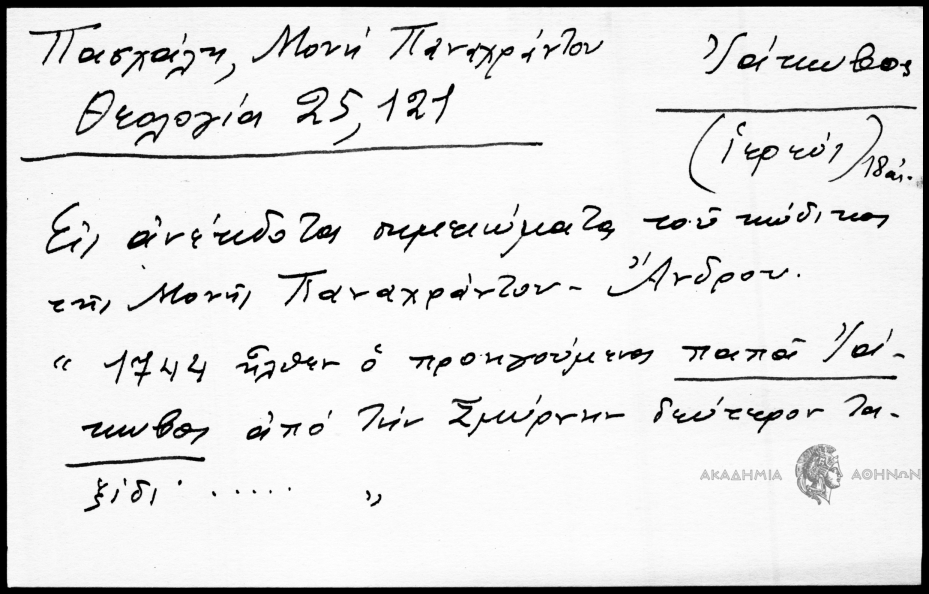 Πασχάλη, Μονή Παναχράντου
Θεολογία 25, 121
Ἰάκωβος
(ἱερεύς) 18 αἰ.
Εἰς ἀνέκδοτα σημειώματα τοῦ κώδικος
τῆς Μονῆς Παναχράντου - Ἄνδρου.
“ 1744 ἦλθεν ὁ προηγούμενος παπᾶ Ἰά-
κωβος ἀπό τήν Σμύρνην δεύτερον τα-
ξίδι ...... ”
ΑΚΑΔΗΜΙΑ ΑΘΗΝΩΝ